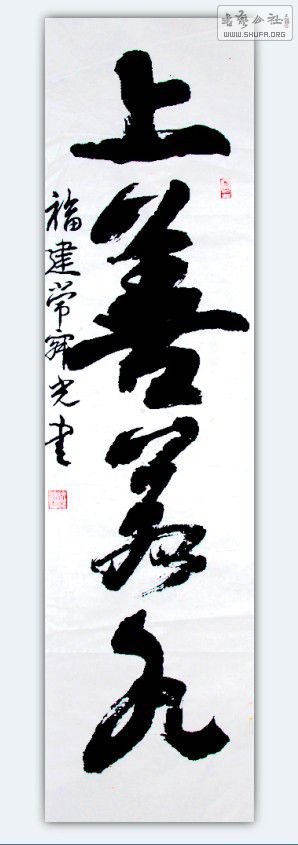 上善若水
福建常寂光书
书艺公社
WWW.SHUFA.ORG